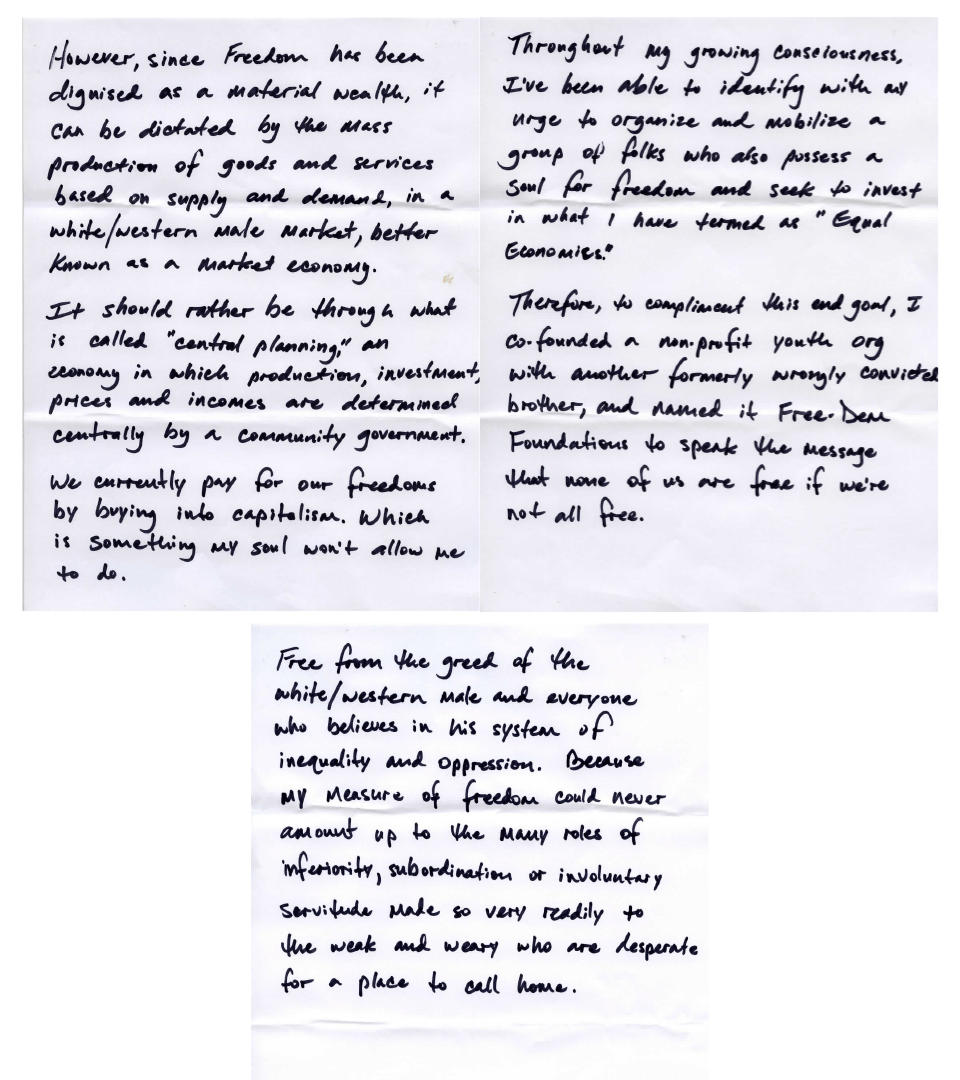 However, since Freedom has been
dignised as a material wealth, it
can be dictated by the mass
production of goods and services
based on supply and demand, in a
white/western male market, better
known as a market economy.
It should rather be through what
is called "central planning," an
economy in which production, investment,
prices and incomes are determined
centrally by a community government.
We currently pay for our freedoms
by buying into capitalism. Which
is something my soul won't allow me
to do.
Throughout my growing consciousness,
I've been able to identify with my
urge to organize and mobilize a
group of folks who also possess a
soul for freedom and seek to invest
in what I have termed as "Equal
Economies."
Therefore, to compliment this end goal, I
co-founded a non-profit youth org
with another formerly wrongly convicted
brother, and named it Free-Dem
Foundations to speak the message
that none of us are free if we're
not all free.
Free from the greed of the
white/western male and everyone
who believes in his system of
inequality and oppression. Because
my measure of freedom could never
amount up to the many roles of
inferiority, subordination or involuntary
servitude made so very readily to
the weak and weary who are desperate
for a place to call home.